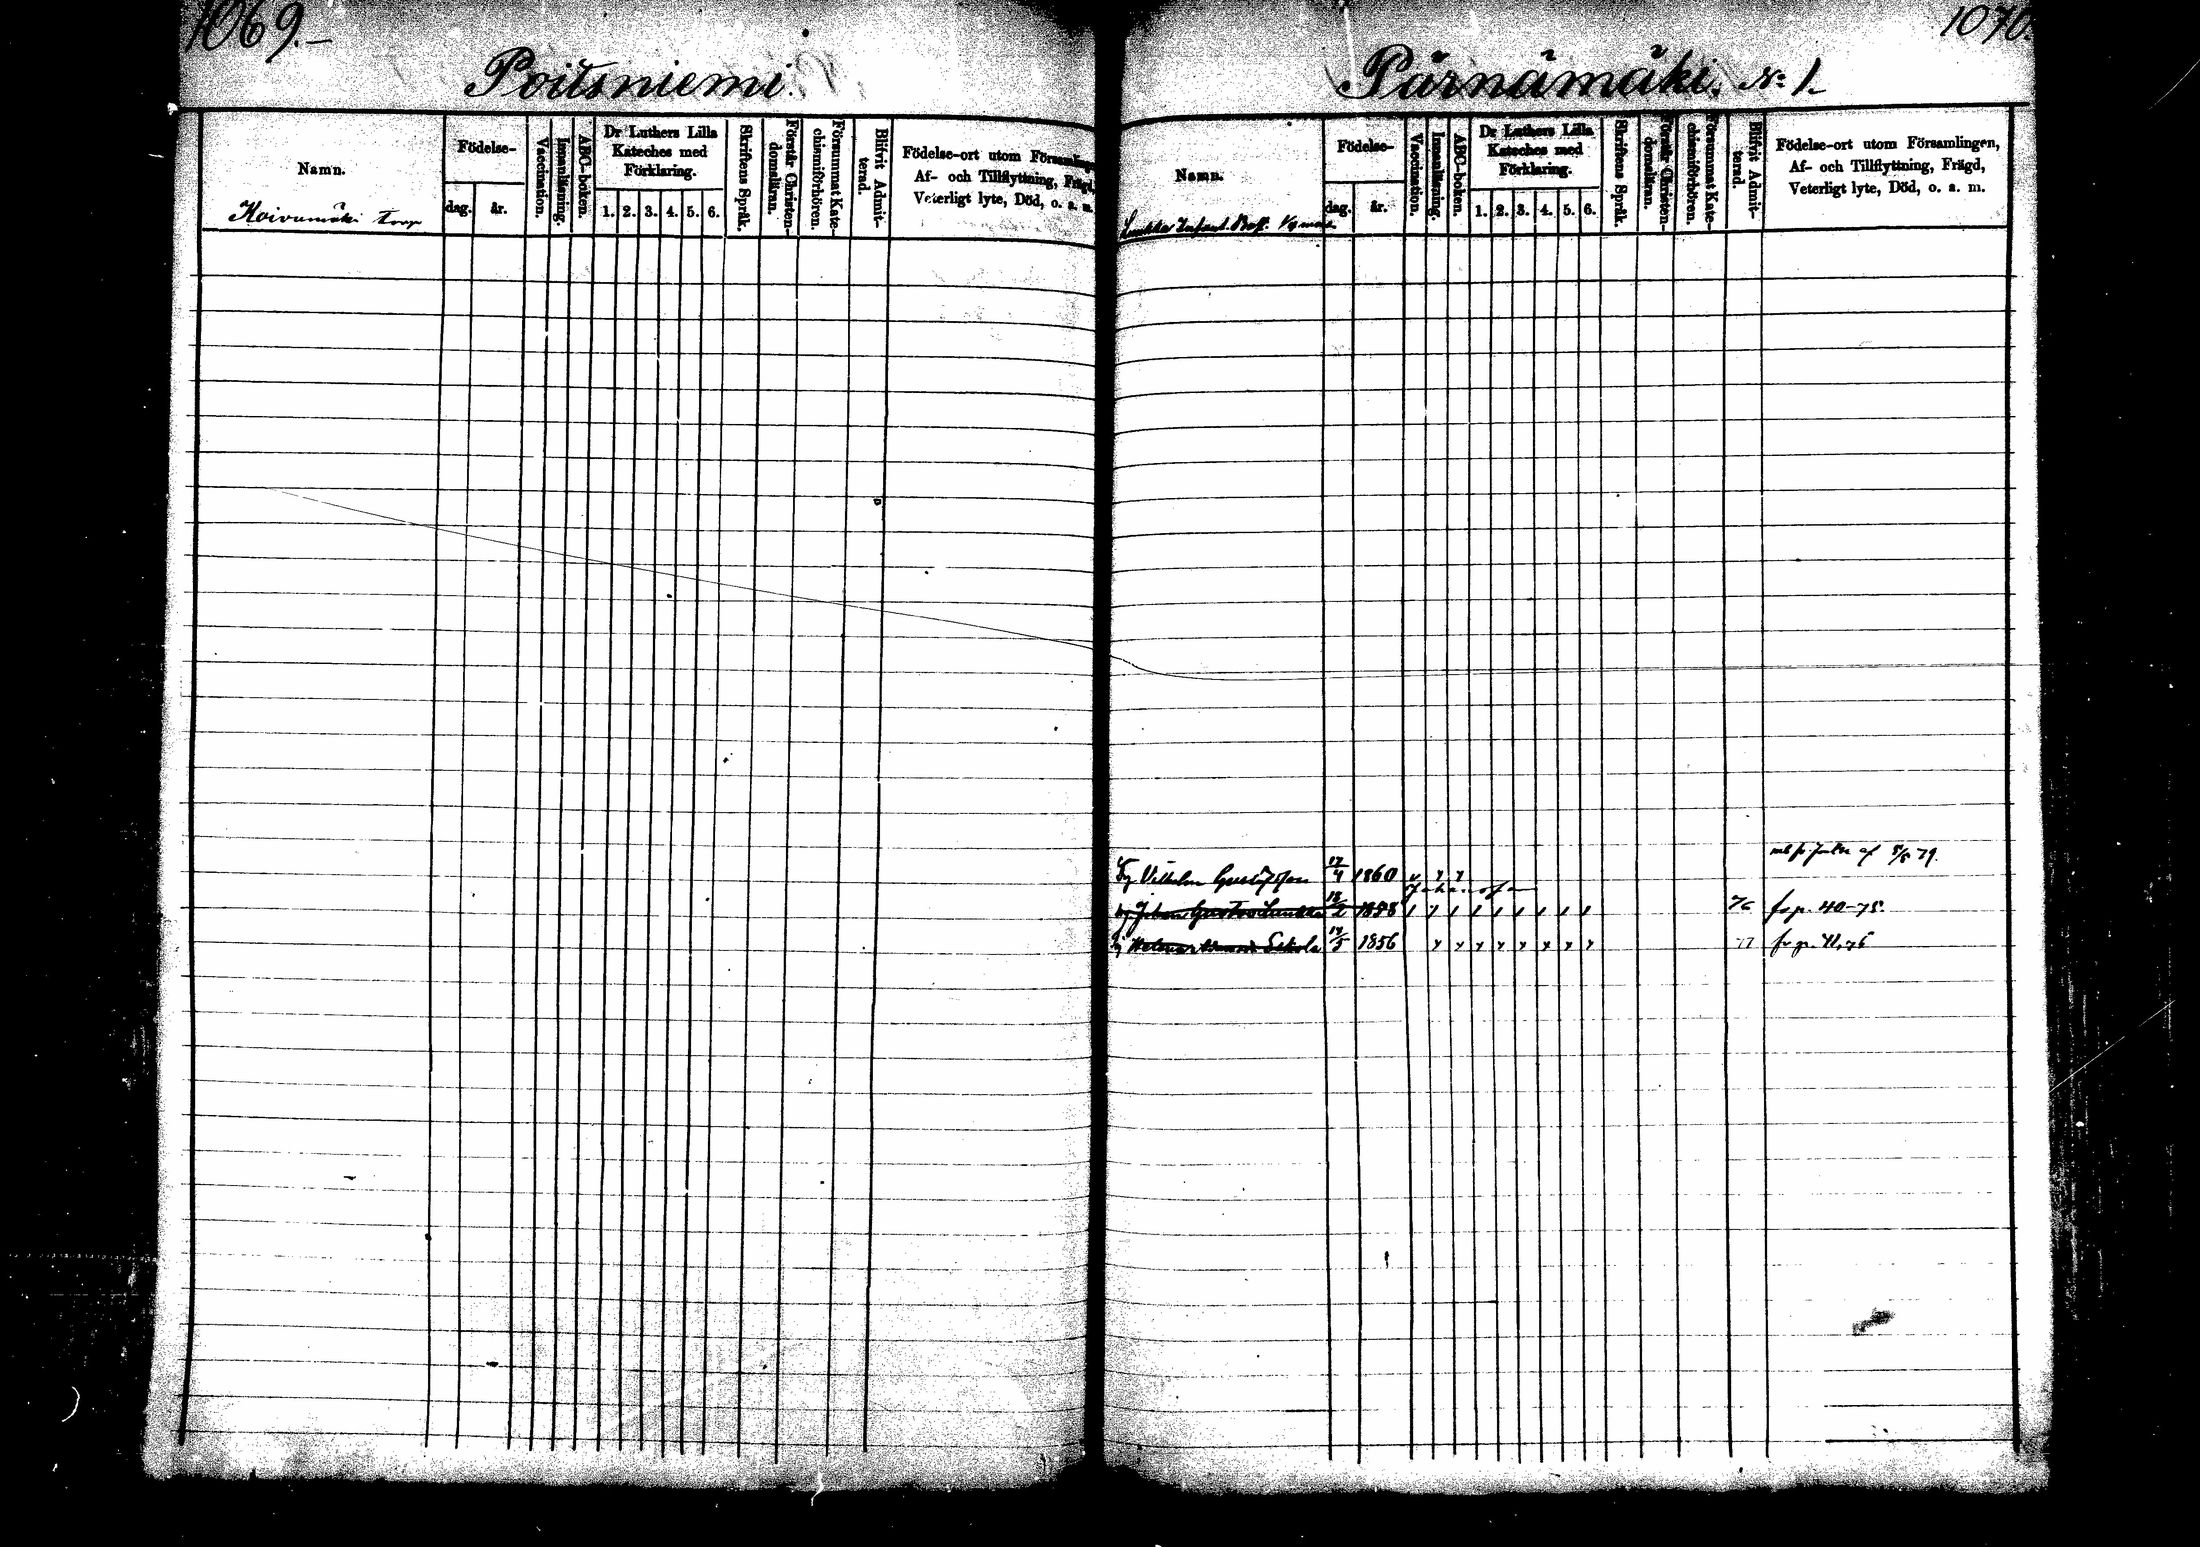 1069.
Poitsniemi.
Namn.
Födelse-
dag.
år.
Vaccination.
Innanläsning.
ABC-boken.
Dr Luthers Lilla
Kateches med
Förklaring.
1. 2. 3. 4. 5. 6.
Skriftens Språk.
Förstår Christen-
domsläran.
Försummat Kate-
chismiförhören.
Blifvit Admit-
terad.
Födelse-ort utom Församlingen
Af- och Tillflyttning, Frägd,
Veterligt lyte, Död, o. s. m.
Koivumäki torp
1070.
Pärnämäki. No 1.
Namn.
Födelse-
dag.
år.
Vaccination.
Innanläsning.
ABC-boken.
Dr Luthers Lilla
Kateches med
Förklaring.
1. 2. 3. 4. 5. 6.
Skriftens Språk.
Förstår Christen-
domsläran.
Försummat Kate-
chismiförhören.
Blifvit Admit-
terad.
Födelse-ort utom Församlingen,
Af- och Tillflyttning, Frägd,
Veterligt lyte, Död, o. s. m.
Vilhelm Gustafsson 17/4 1860
Johan Gustaf 18/2 1858 76 fr p. 40-75.
1856 77